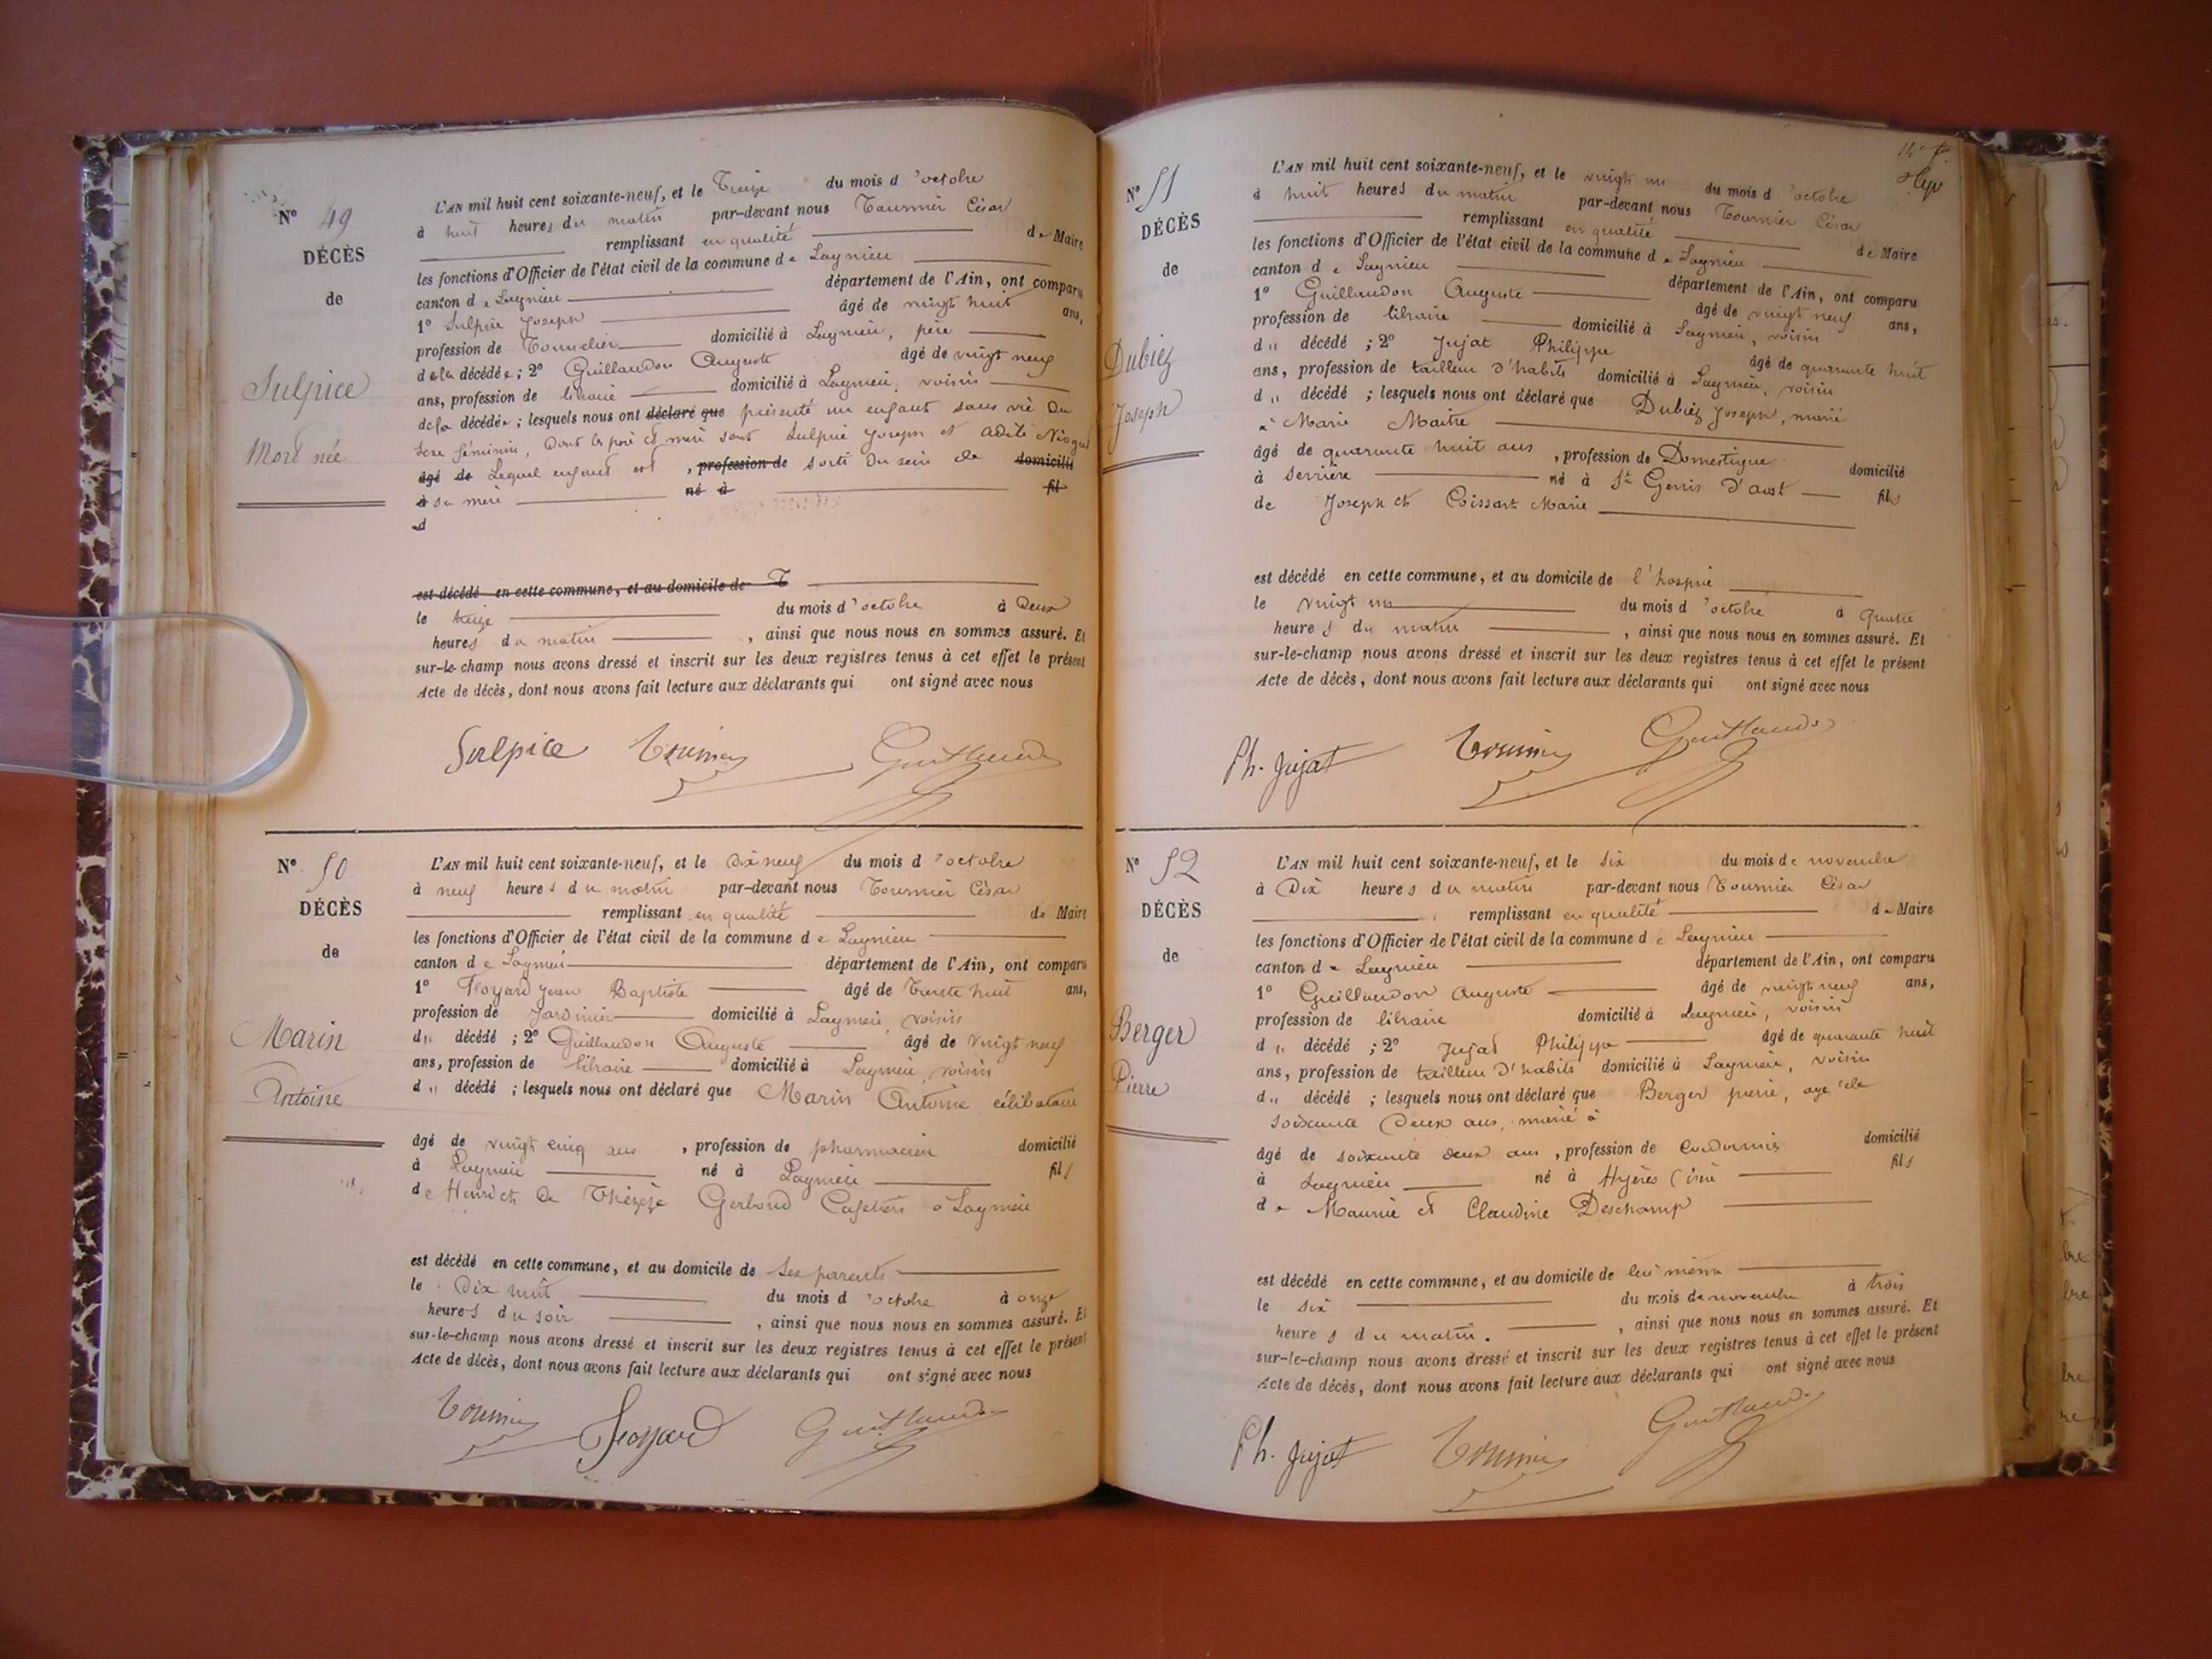 N° 49
DÉCÈS
de
Sulpice
Mort née
L'AN mil huit cent soixante-neuf, et le Treize du mois d'octobre
à huit heures du matin par-devant nous Tournier César
remplissant en qualité de Maire
les fonctions d'Officier de l'état civil de la commune de Lagnieu
canton de Lagnieu département de l'Ain, ont comparu
1° Sulpice Joseph âgé de vingt huit ans,
profession de Tonnelier domicilié à Lagnieu, père
de la décédée; 2° Guillaudon Auguste âgé de vingt neuf
ans, profession de libraire domicilié à Lagnieu, voisin
de la décédée; lesquels nous ont déclaré que présenté un enfant sans vie du
sexe féminin, dont les père et mère sont Sulpice Joseph et Adèle
âgé de Lequel enfant est, profession de sorti du sein de domicilié
à sa mère né à fil
d
est décédé en cette commune, et au domicile de
le treize du mois d'octobre à Deux
heures du matin, ainsi que nous nous en sommes assuré. Et
sur-le-champ nous avons dressé et inscrit sur les deux registres tenus à cet effet le présent
Acte de décès, dont nous avons fait lecture aux déclarants qui ont signé avec nous
Sulpice Tournier Guillaudon
N° 50
DÉCÈS
de
Marin
Antoine
L'AN mil huit cent soixante-neuf, et le Dix neuf du mois d'octobre
à neuf heures du matin par-devant nous Tournier César
remplissant en qualité de Maire
les fonctions d'Officier de l'état civil de la commune de Lagnieu
canton de Lagnieu département de l'Ain, ont comparu
1° Jean Baptiste âgé de Trente huit ans,
profession de Jardinier domicilié à Lagnieu, voisin
du décédé; 2° Guillaudon Auguste âgé de vingt neuf
ans, profession de libraire domicilié à Lagnieu, voisin
du décédé; lesquels nous ont déclaré que Marin Antoine célibataire
âgé de vingt cinq ans, profession de pharmacien domicilié
à Lagnieu né à Lagnieu fils
de Henri et de Thérèze Gerboud Cafetiers à Lagnieu
est décédé en cette commune, et au domicile de ses parents
le Dix huit du mois d'octobre à onze
heures du soir, ainsi que nous nous en sommes assuré. Et
sur-le-champ nous avons dressé et inscrit sur les deux registres tenus à cet effet le présent
Acte de décès, dont nous avons fait lecture aux déclarants qui ont signé avec nous
Tournier Guillaudon
14e f.
N° 51
DÉCÈS
de
Dubiez
Joseph
L'AN mil huit cent soixante-neuf, et le vingt un du mois d'octobre
à huit heures du matin par-devant nous Tournier César
remplissant en qualité de Maire
les fonctions d'Officier de l'état civil de la commune de Lagnieu
canton de Lagnieu département de l'Ain, ont comparu
1° Guillaudon Auguste âgé de vingt neuf ans,
profession de libraire domicilié à Lagnieu, voisin
du décédé; 2° Jujat Philippe âgé de quarante huit
ans, profession de tailleur d'habits domicilié à Lagnieu, voisin
du décédé; lesquels nous ont déclaré que Dubiez Joseph, marié
à Marie Maitre
âgé de quarante huit ans, profession de Domestique domicilié
à Serrière né à St Genis d'aost fils
de Joseph et Coissart Marie
est décédé en cette commune, et au domicile de l'hospice
le vingt un du mois d'octobre à Quatre
heures du matin, ainsi que nous nous en sommes assuré. Et
sur-le-champ nous avons dressé et inscrit sur les deux registres tenus à cet effet le présent
Acte de décès, dont nous avons fait lecture aux déclarants qui ont signé avec nous
Ph. Jujat Tournier Guillaudon
N° 52
DÉCÈS
de
Berger
Pierre
L'AN mil huit cent soixante-neuf, et le Six du mois de novembre
à Dix heures du matin par-devant nous Tournier César
remplissant en qualité de Maire
les fonctions d'Officier de l'état civil de la commune de Lagnieu
canton de Lagnieu département de l'Ain, ont comparu
1° Guillaudon Auguste âgé de vingt neuf ans,
profession de libraire domicilié à Lagnieu, voisin
du décédé; 2° Jujat Philippe âgé de quarante huit
ans, profession de tailleur d'habits domicilié à Lagnieu, voisin
du décédé; lesquels nous ont déclaré que Berger pierre, age de
soixante Deux ans, marié à
âgé de soixante deux ans, profession de Cordonnier domicilié
à Lagnieu né à Hyères (isère fils
de Maurice et Claudine Deschamp
est décédé en cette commune, et au domicile de lui même
le six du mois de novembre à trois
heures du matin., ainsi que nous nous en sommes assuré. Et
sur-le-champ nous avons dressé et inscrit sur les deux registres tenus à cet effet le présent
Acte de décès, dont nous avons fait lecture aux déclarants qui ont signé avec nous
Ph. Jujat Tournier Guillaudon